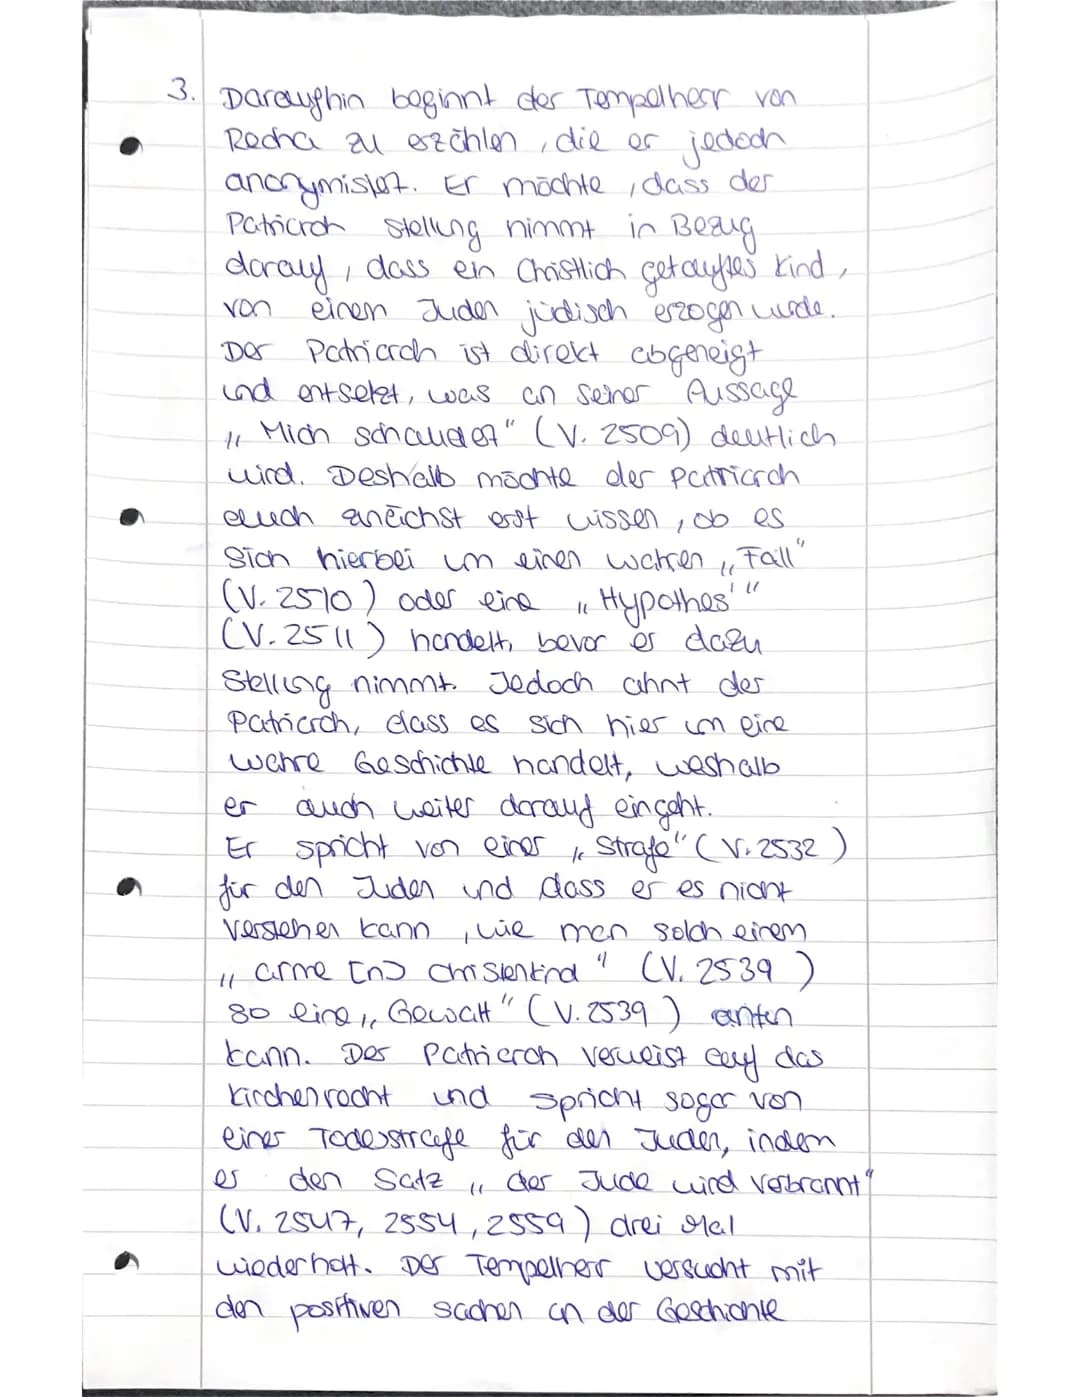 3. Daraufhin beginnt der Tempelherr von
Recha zu erzählen, die er jedoch
anonymisiert. Er möchte, dass der
Patriarch Stellung nimmt in Bezug
darauf, dass ein Christlich getauftes Kind,
von einem Juden jüdisch erzogen wurde.
Der Patriarch ist direkt abgeneigt
und entsetzt, was an seiner Aussage
„Mich schaudert" (V. 2509) deutlich
wird. Deshalb möchte der Patriarch
erst wissen, ob es
sich hierbei um einen wahren „Fall"
(V. 2510) oder eine „Hypothes'"
(V. 2511) handelt, bevor er dazu
Stellung nimmt. Jedoch ahnt der
Patriarch, dass es sich hier um eine
wahre Geschichte handelt, weshalb
er auch weiter darauf eingeht.
Er spricht von einer „Strafe" (V. 2532)
für den Juden und dass er es nicht
verstehen kann, wie man solch einem
„arme [n] Christenkind" (V. 2539)
so eine „Gewalt" (V. 2539) antun
kann. Der Patriarch verweist auf das
Kirchenrecht und spricht sogar von
einer Todesstrafe für den Juden, indem
er den Satz „der Jude wird verbrannt"
(V. 2547, 2554, 2559) drei Mal
wiederholt. Der Tempelherr versucht mit
den positiven sachen an der Geschichte